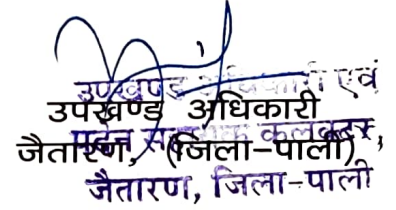 उपखण्ड अधिकारी एवं
उपखण्ड अधिकारी
पदेन सहायक कलक्टर,
जैतारण, (जिला-पाली)
जैतारण, जिला-पाली